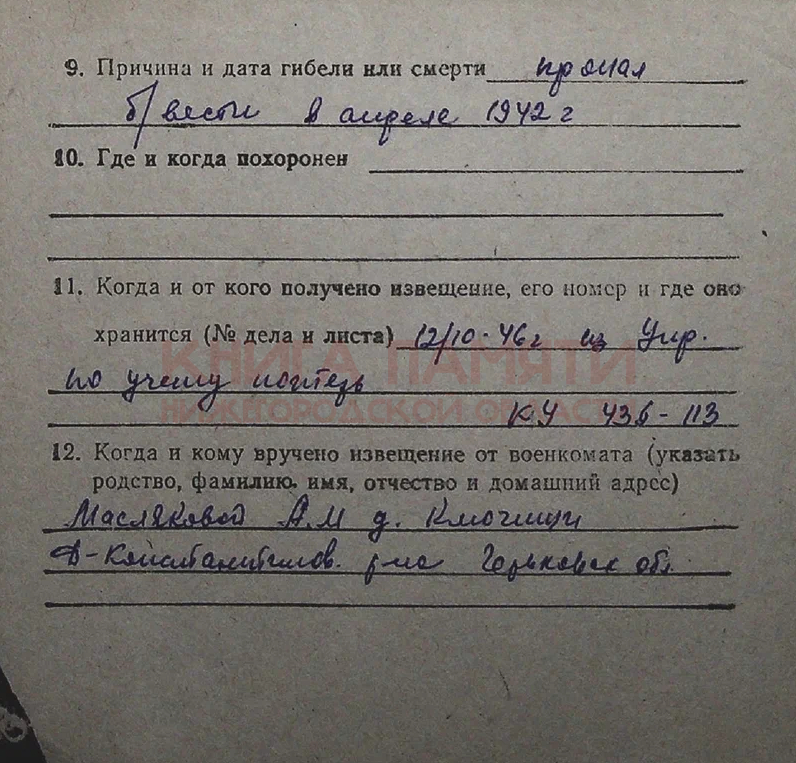 9. Причина и дата гибели или смерти пропал
б/вести в апреле 1942 г
10. Где и когда похоронен
11. Когда и от кого получено извещение, его номер и где оно
хранится (№ дела и листа) 12/10-46г из Упр.
по учету потерь
КНИГА ПАМЯТИ
НИЖЕГОРОДСКОЙ ОБЛАСТИ
КУ 436-113
12. Когда и кому вручено извещение от военкомата (указать
родство, фамилию, имя, отчество и домашний адрес)
Масляковой А.М д.
Д-Константинов. р-на Горьковск обл